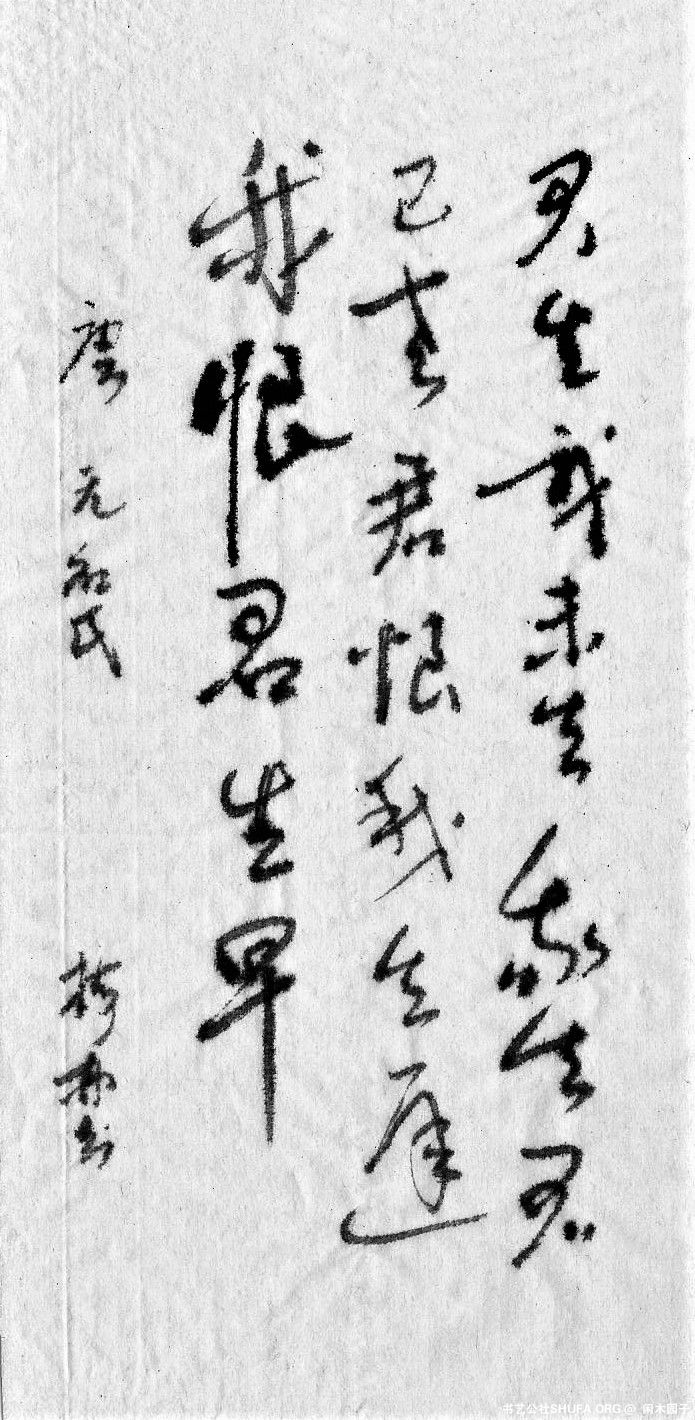 君生我未生我生君
已老君恨我生遲
我恨君生早
唐 元和氏
书艺公社SHUFA.ORG@ 闲木园子